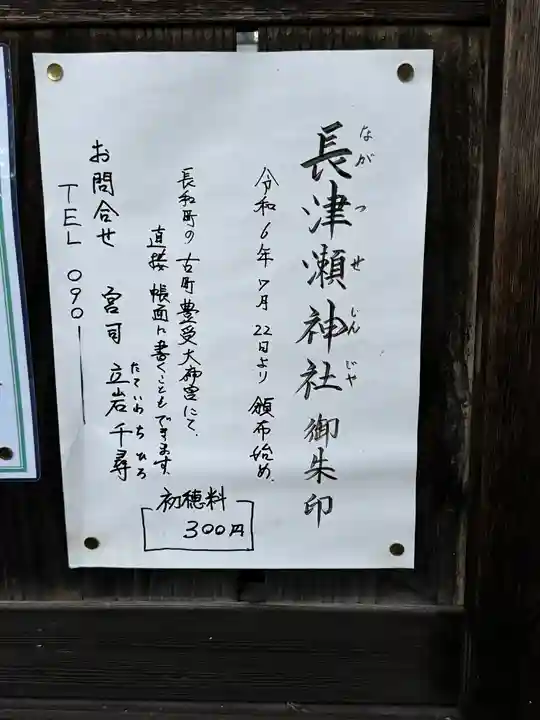 長津瀬神社 御朱印
ながつせじんじゃ
令和6年7月22日より 頒布始め.
長和町の古町豊受大神宮にて、
直接 帳面に書くこともできます。
お問合せ 宮司 立岩千尋
たていわちひろ
TEL 090
初穂料
300円